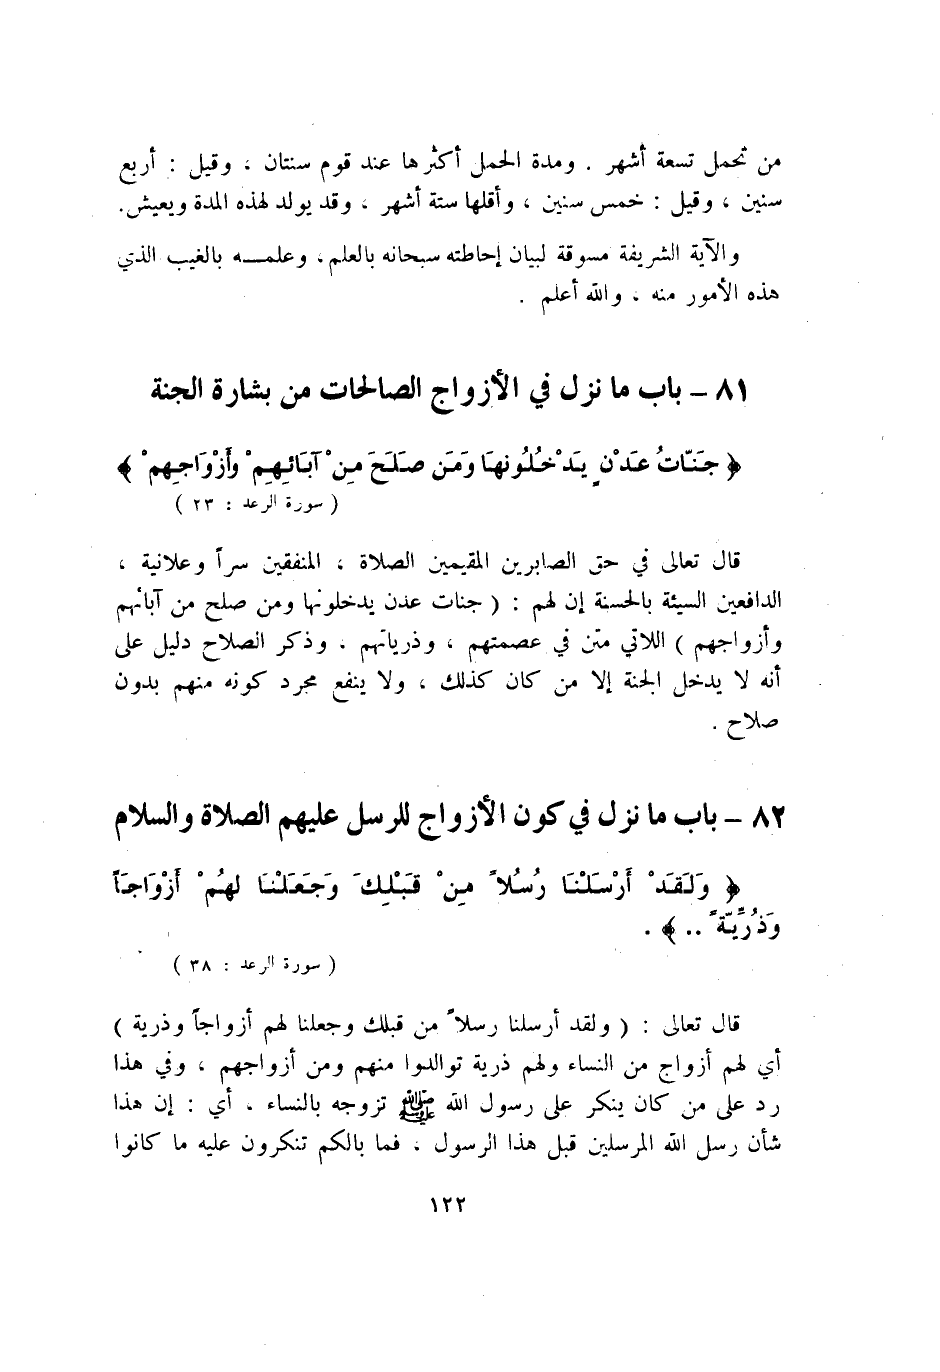 من تحمل تسعة أشهر . ومدة الحمل أكثرها عند قوم سنتان ، وقيل : أربع
سنين ، وقيل : خمس سنين ، وأقلها ستة أشهر ، وقد يولد لهذه المدة ويعيش.
والآية الشريفة مسوقة لبيان إحاطته سبحانه بالعلم، وعلمــه بالغيب الذي
هذه الأمور منه ، والله أعلم .
٨١ – باب ما نزل في الأزواج الصالحات من بشارة الجنة
﴿ جَنَّاتُ عَدْنٍ يَدْخُلُونَهَا وَمَن صَلَحَ مِنْ آبَائِهِمْ وأَزْوَاجِهِمْ ﴾
( سورة الرعد : ٢٣ )
قال تعالى في حق الصابرين المقيمين الصلاة ، المنفقين سراً وعلانية ،
الدافعين السيئة بالحسنة إن لهم : ( جنات عدن يدخلونها ومن صلح من آبائهم
وأزواجهم ) اللاتي متن في عصمتهم ، وذرياتهم . وذكر الصلاح دليل على
أنه لا يدخل الجنة إلا من كان كذلك ، ولا ينفع مجرد كونه منهم بدون
صلاح .
٨٢ – باب ما نزل في كون الأزواج للرسل عليهم الصلاة والسلام
﴿ وَلَقَدْ أَرْسَلْنَا رُسُلاً مِنْ قَبْلِكَ وَجَعَلْنَا لَهُمْ أَزْوَاجَاً
وَذُرِّيَّةً .. ﴾ .
( سورة الرعد : ٣٨ )
قال تعالى : ( ولقد أرسلنا رسلاً من قبلك وجعلنا لهم أزواجاً وذرية )
أي لهم أزواج من النساء ولهم ذرية توالدوا منهم ومن أزواجهم ، وفي هذا
رد على من كان ينكر على رسول الله ﷺ تزوجه بالنساء . أي : إن هذا
شأن رسل الله المرسلين قبل هذا الرسول ، فما بالكم تنكرون عليه ما كانوا
١٢٢